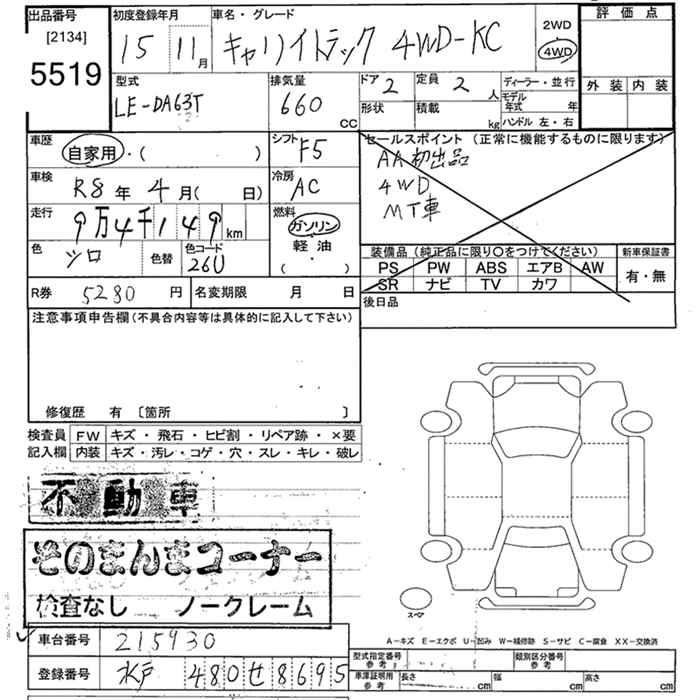 出品番号 初度登録年月 車名・グレード 2WD 評価点
[2134] 15 11月 キャリイトラック 4WD-KC 4WD
5519 型式 排気量 ドア 2 定員 2 人 ディーラー・並行 外装 内装
LE-DA63T 660 CC 形状 積載 kg モデル年式 年
ハンドル 左・右
車歴 自家用・( ) シフト F5 セールスポイント (正常に機能するものに限ります)
AA初出品
車検 R8年 4月( 日) 冷房 AC 4WD
MT車
走行 9万4千149km 燃料 ガソリン
軽油
( ・ )
色 シロ 色替 色コード 26U 装備品 (純正品に限り○をつけてください) 新車保証書
PS PW ABS エアB AW 有・無
SR ナビ TV カワ
R券 5280 円 名変期限 月 日 後日品
注意事項申告欄 (不具合内容等は具体的に記入して下さい)
修復歴 有 〔箇所 〕
検査員 FW キズ・飛石・ヒビ割・リペア跡・×要
記入欄 内装 キズ・汚レ・コゲ・穴・スレ・キレ・破レ
不動車
そのまんまコーナー
検査なし ノークレーム
スペア
A-キズ E-エクボ U-凹み W-補修跡 S-サビ C-腐食 XX-交換済
車台番号 215930 型式指定番号 参考 類別区分番号 参考
登録番号 水戸 480せ8695 車庫証明用 参考 長さ cm 幅 cm 高さ cm